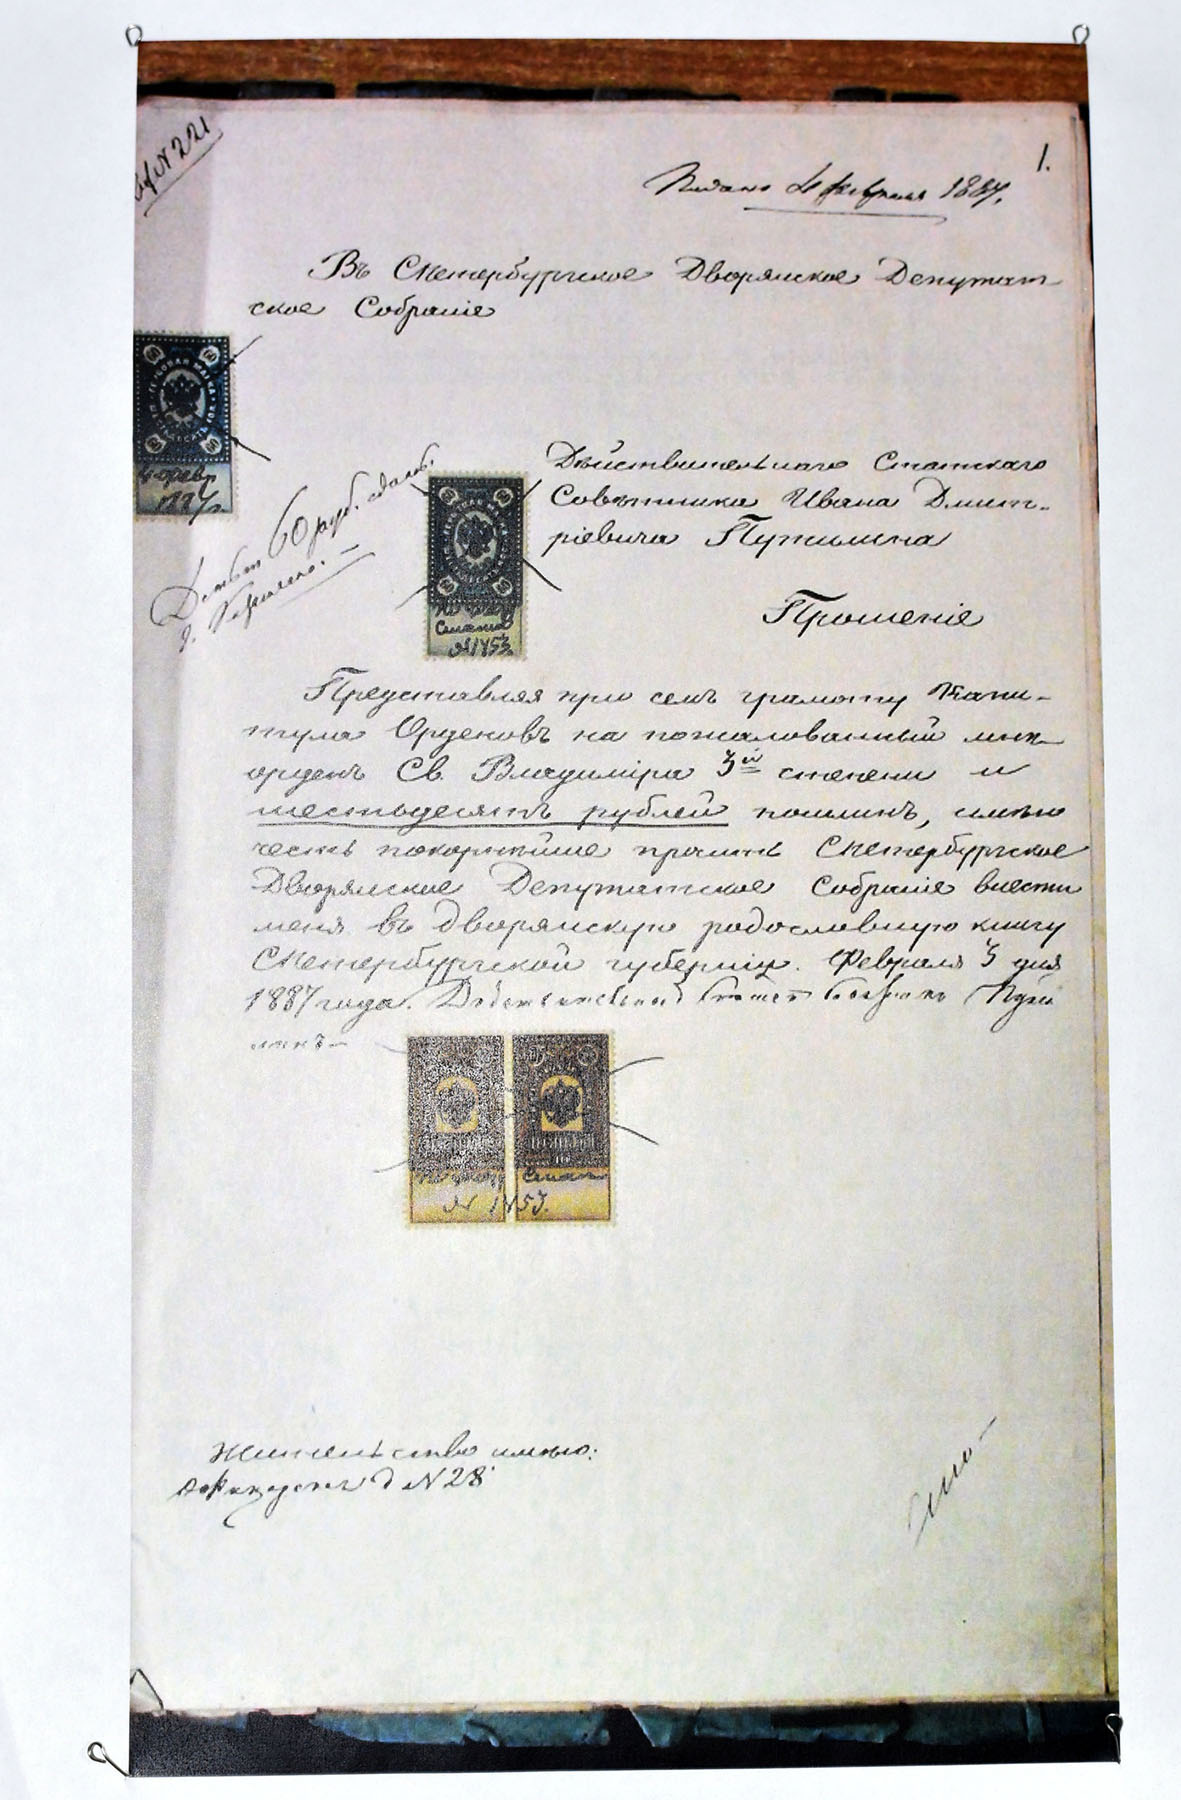 № 221
1.
Подано 4 февраля 1887.
Въ СПетербургское Дворянское Депутат-
ское Собраніе
ГЕРБОВАЯ МАРКА
60
4 февр
1887
Дѣйствительнаго Статскаго
Совѣтника Ивана Дмит-
ріевича Путилина
60 руб.
Прошеніе
60
№ 1453.
Представляя при семъ грамоту Капи-
тула Орденовъ на пожалованный мнѣ
орденъ Св. Владиміра 3й степени и
шестьдесятъ рублей пошлинъ, имѣю
честь покорнѣйше просить СПетербургское
Дворянское Депутатское Собраніе внести
меня въ дворянскую родословную книгу
СПетербургской губерніи. Февраля 3 дня
1887 года. Дѣйствительный Стат Пути
линъ
№ 1453.
Жительство имѣю:
д № 28